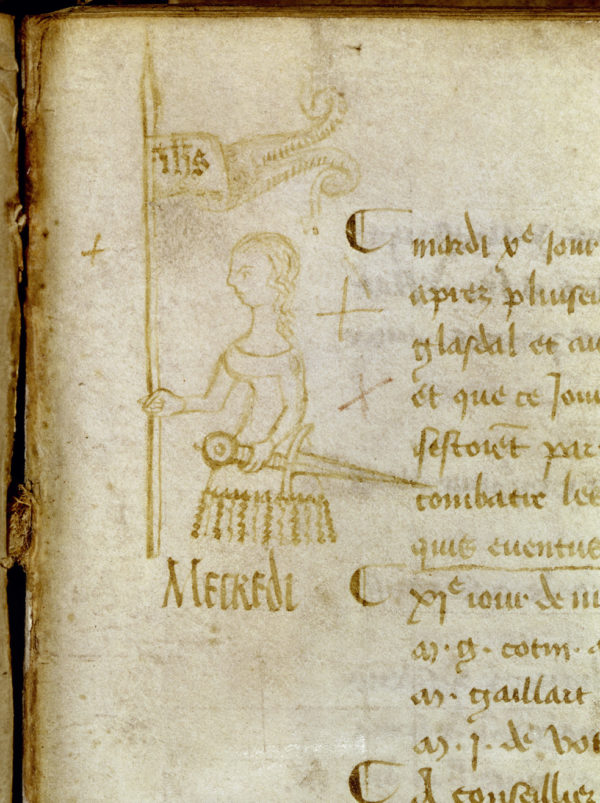 ihs
mardi xe jour
aprez pluiseu
glasdal et au
et que ce Jour
sestoiẽt par
combatre les
quis eventus
MECREDI
xje iour de m
m. g. cotin.
m. gaillart
m. j. de
A conseillier